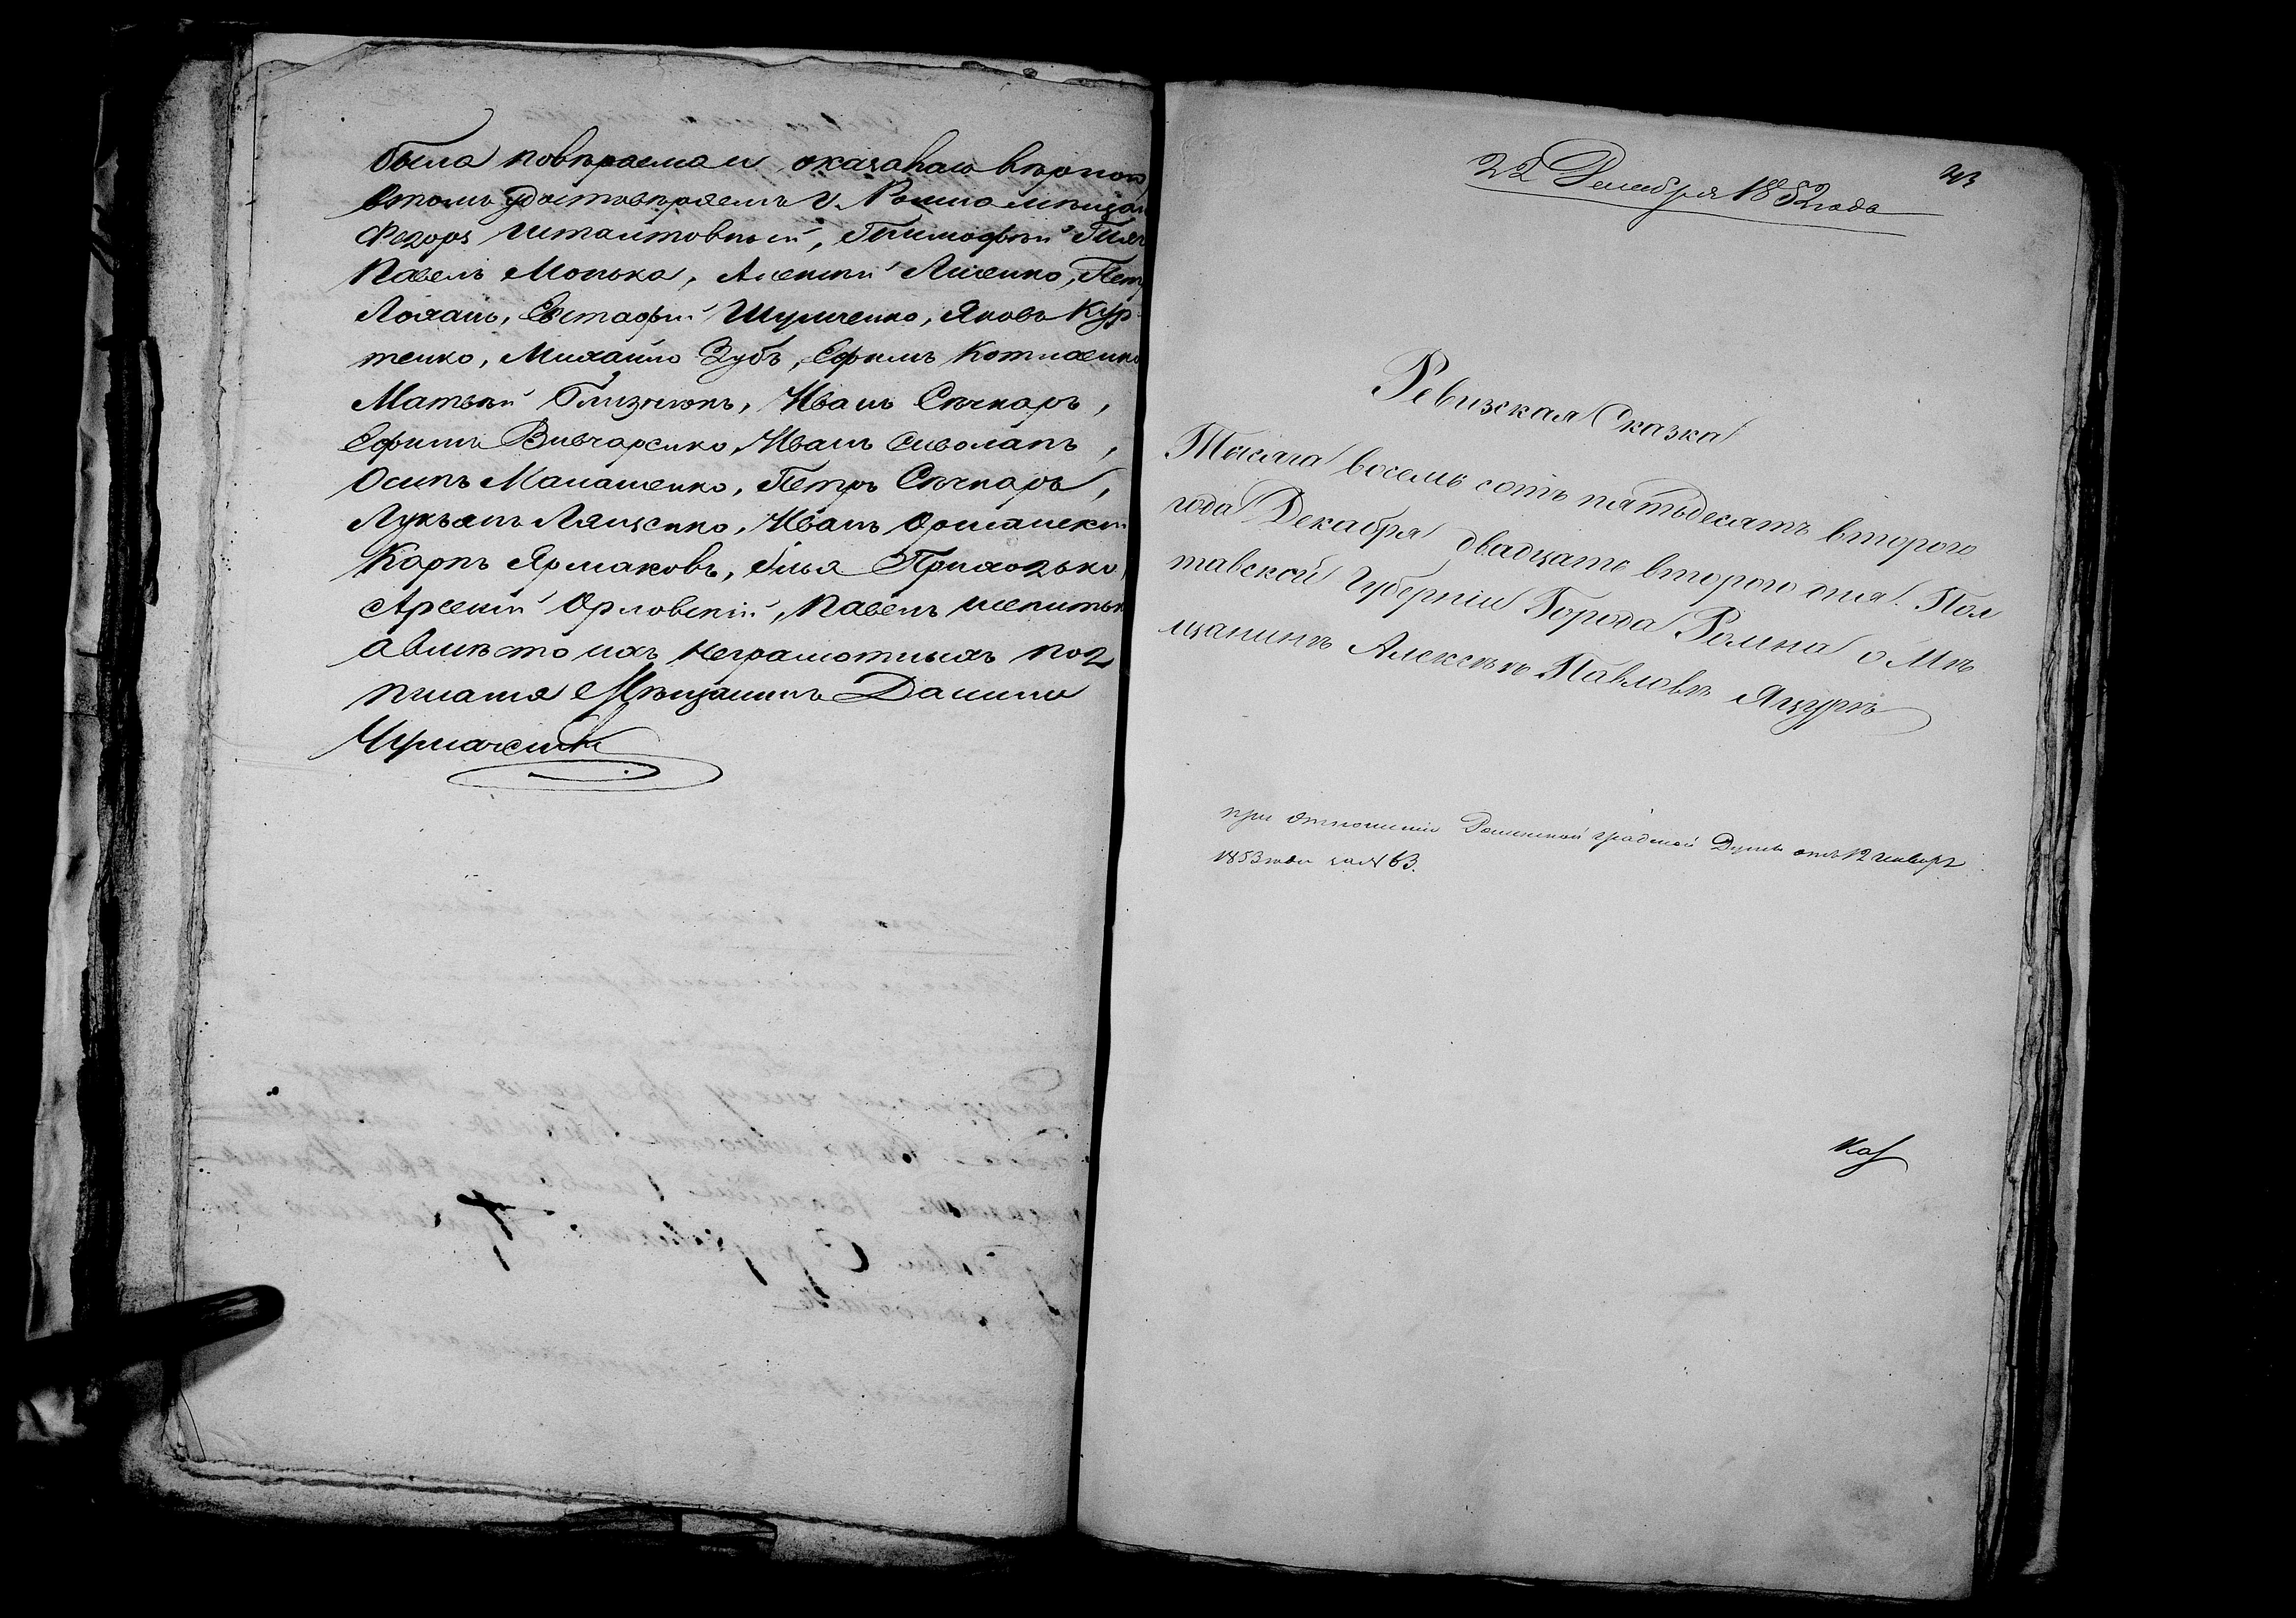 была повѣряема и оказалась вѣрною
втомъ удостовѣряемъ г. Ромна мѣщан
Федоръ Тимофѣй
Павелъ Монька, Алексѣй Лисенко, Петр
Лоханъ, Евстафій Шумченко, Яковъ Кур
тенко, Михайло Зубъ, Ефимъ
Матвѣй Близнюкъ, Иванъ Сѣчкарь,
Ефимъ Вивчаренко, Иванъ Сиволапъ,
Осипъ Манашенко, Петръ Сѣчкарь,
Лукьянъ Лященко, Иванъ
Карпъ Ярмаковъ, Илья Приходько
Арсеній Орловскій, Павелъ
а вмѣсто ихъ неграмотныхъ под
писался Мѣщанинъ Данило
Чумаченко
22 Декабря 1852 года
Ревизская Сказка
Тысяча восемь сотъ пятьдесятъ второго
года Декабря двадцать второго дня. Пол
тавской Губерніи Города Ромна о Мѣ
щанинѣ Алексѣѣ Павловѣ Яцурѣ
при отношеніи Роменской градской Думы отъ 12 генваря
1853 года за № 63.